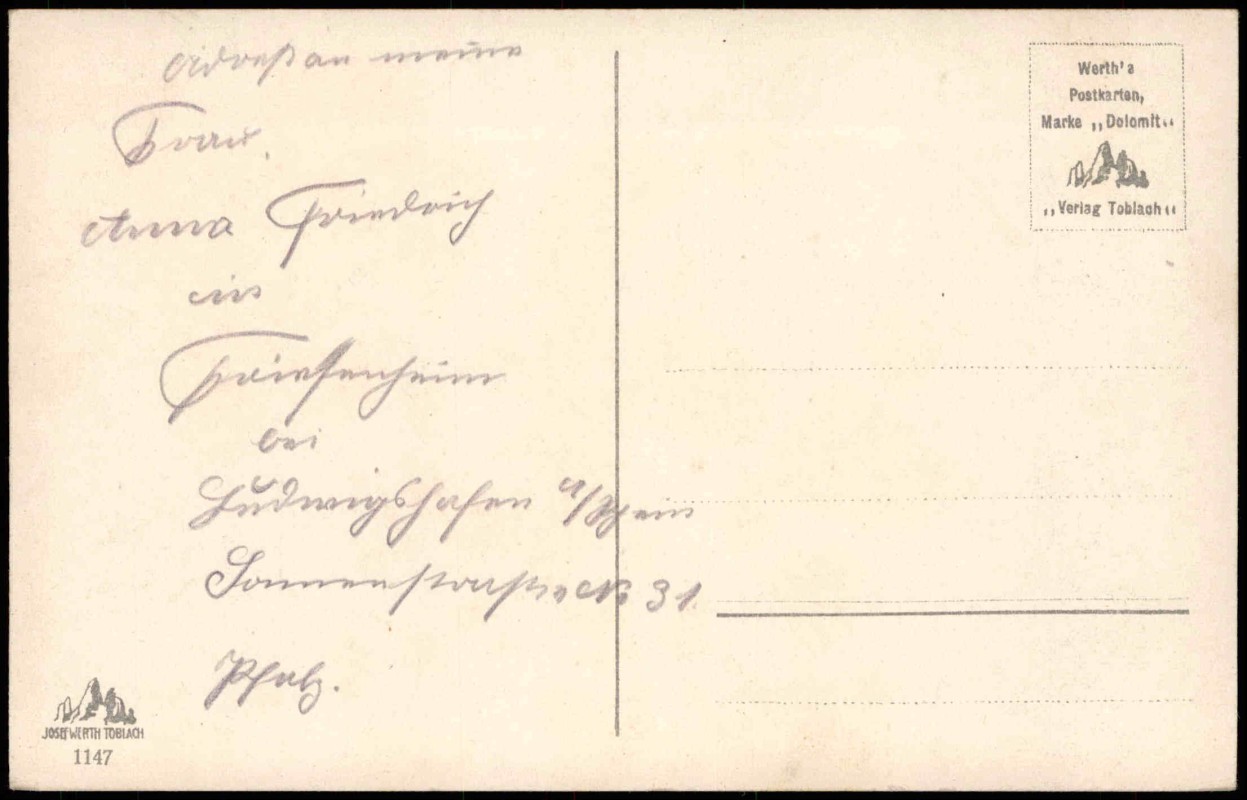 Adreß an meine
Frau.
Anna Friedrich
in
Friesenheim
bei
Ludwigshafen a/Rhein
Sonnenstraße No 31
Pfalz.
Werth's
Postkarten,
Marke „Dolomit“
„Verlag Toblach“
JOSEF WERTH TOBLACH
1147